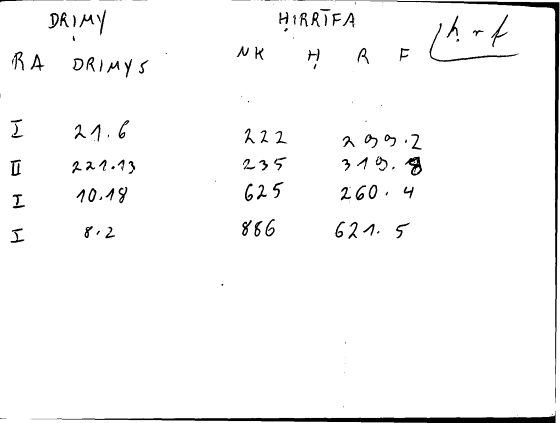 DRIMY ḤIRRĪFA ḥ r f
RA DRIMYS NK Ḥ R F
I 21.6 222 299.2
II 221.13 235 319.8
I 10.18 625 260.4
I 8.2 886 621.5